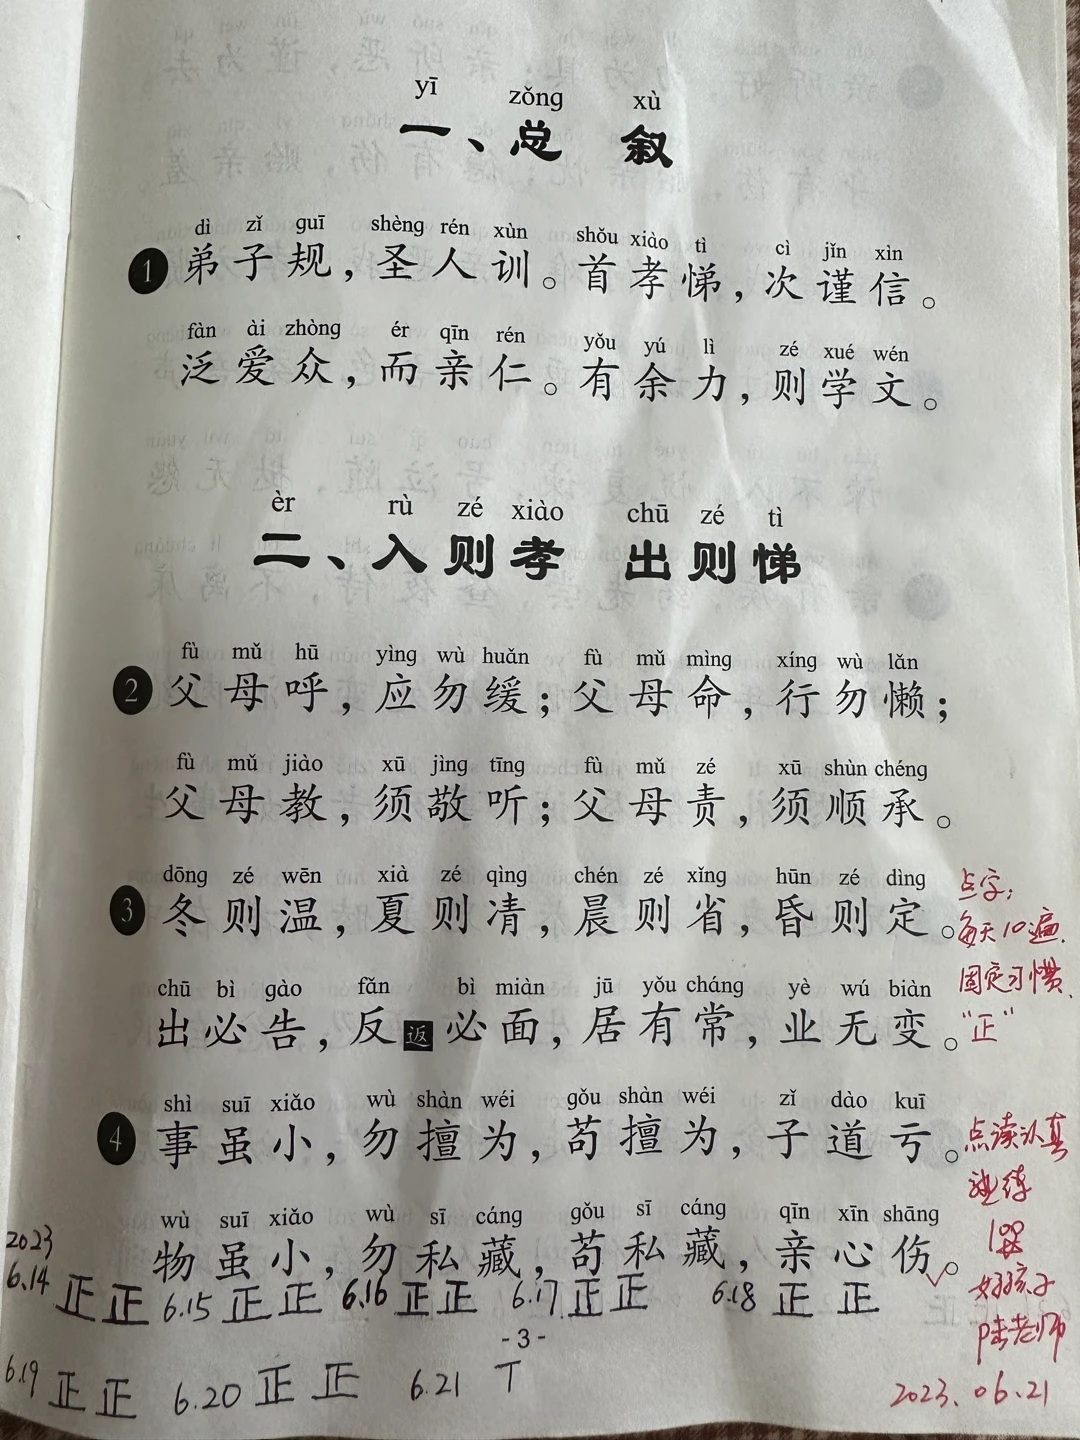 yī zǒng xù
一、总 叙
dì zǐ guī shèng rén xùn shǒu xiào tì cì jǐn xìn
1 弟子规，圣人训。首孝悌，次谨信。
fàn ài zhòng ér qīn rén yǒu yú lì zé xué wén
泛爱众，而亲仁。有余力，则学文。
èr rù zé xiào chū zé tì
二、入则孝 出则悌
fù mǔ hū yìng wù huǎn fù mǔ mìng xíng wù lǎn
2 父母呼，应勿缓；父母命，行勿懒；
fù mǔ jiào xū jìng tīng fù mǔ zé xū shùn chéng
父母教，须敬听；父母责，须顺承。
dōng zé wēn xià zé qìng chén zé xǐng hūn zé dìng
3 冬则温，夏则凊，晨则省，昏则定。
chū bì gào fǎn bì miàn jū yǒu cháng yè wú biàn
出必告，反返必面，居有常，业无变。
shì suī xiǎo wù shàn wéi gǒu shàn wéi zǐ dào kuī
4 事虽小，勿擅为，苟擅为，子道亏。
wù suī xiǎo wù sī cáng gǒu sī cáng qīn xīn shāng
物虽小，勿私藏，苟私藏，亲心伤。
点字：
每天10遍.
固定习惯.
“正”
点读认真
熟练
好孩子
陆老师
2023.06.21
2023
6.14 正正 6.15 正正 6.16 正正 6.17 正正 6.18 正正
-3-
6.19 正正 6.20 正正 6.21 丅